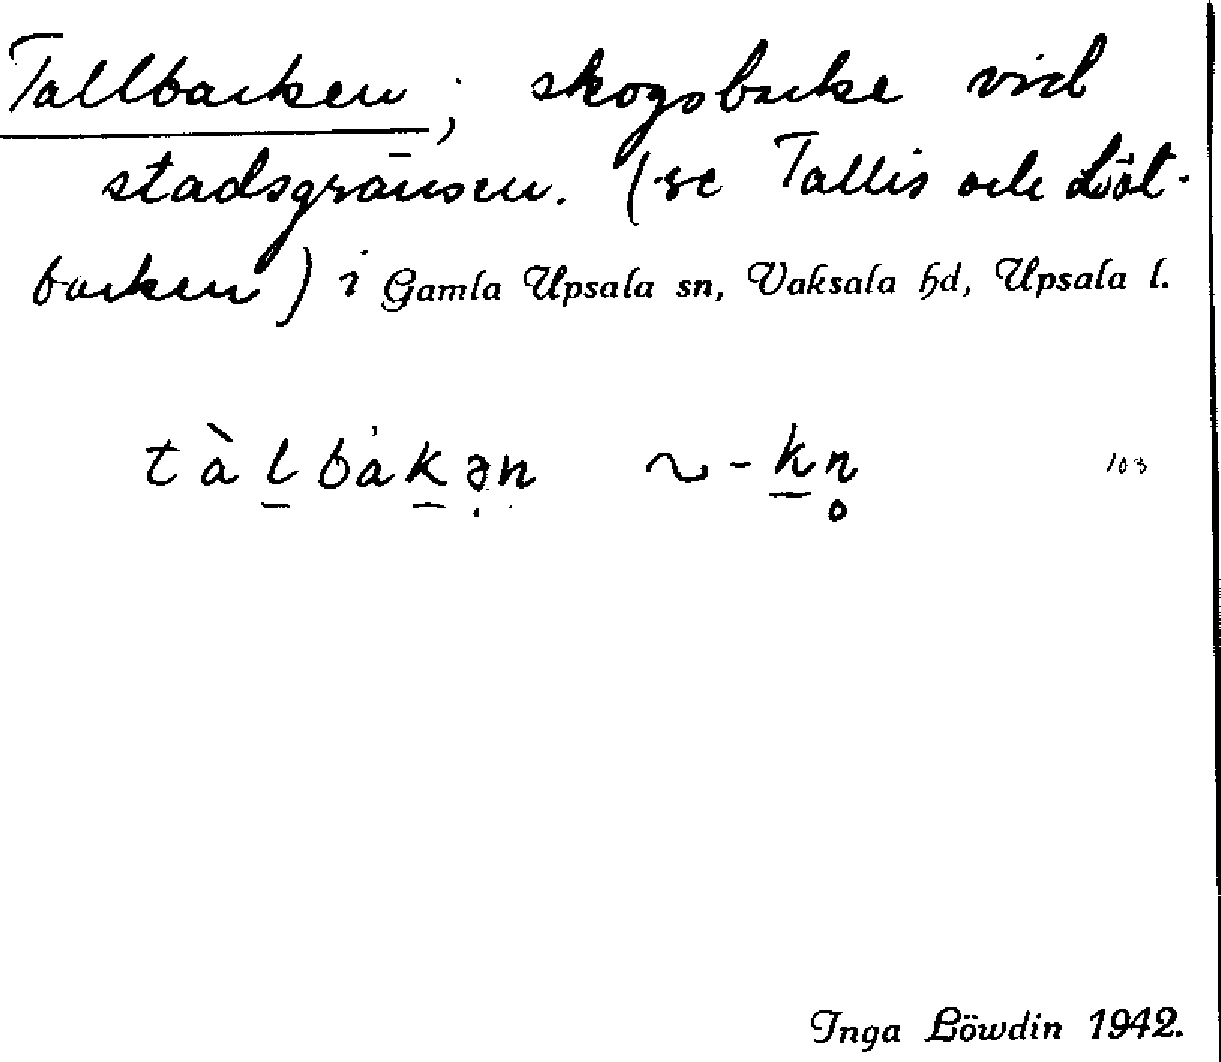 Tallbacken; skogsbacke vid
stadsgränsen. (se Tallis och Löt-
backen) i Gamla Upsala sn, Vaksala hd, Upsala l.
tàl̠bàk̠ən ~ -k̠n̥ 103
Inga Löwdin 1942.